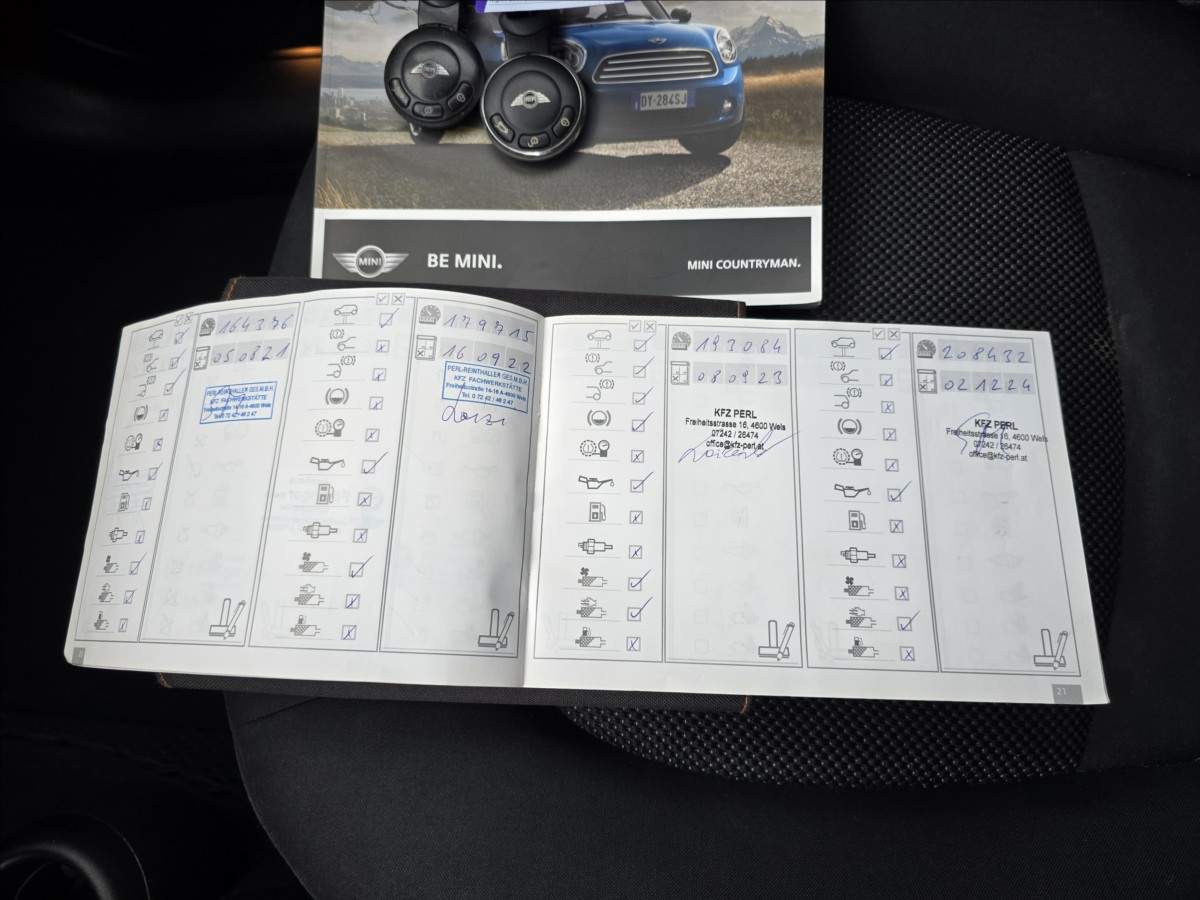 MINI
DY·284SJ
MINI
BE MINI.
MINI COUNTRYMAN.
164376
050821
PERL-REINTHALLER GES.M.B.H.
KFZ FACHWERKSTÄTTE
Freiheitsstraße 14-16 A-4600 Wels
Tel. 0 72 42 / 46 2 47
179715
160922
PERL-REINTHALLER GES.M.B.H.
KFZ FACHWERKSTÄTTE
Freiheitsstraße 14-16 A-4600 Wels
Tel. 0 72 42 / 46 2 47
193084
080923
KFZ PERL
Freiheitsstrasse 16, 4600 Wels
07242 / 26474
office@kfz-perl.at
208432
021224
KFZ PERL
Freiheitsstrasse 16, 4600 Wels
07242 / 26474
office@kfz-perl.at
21